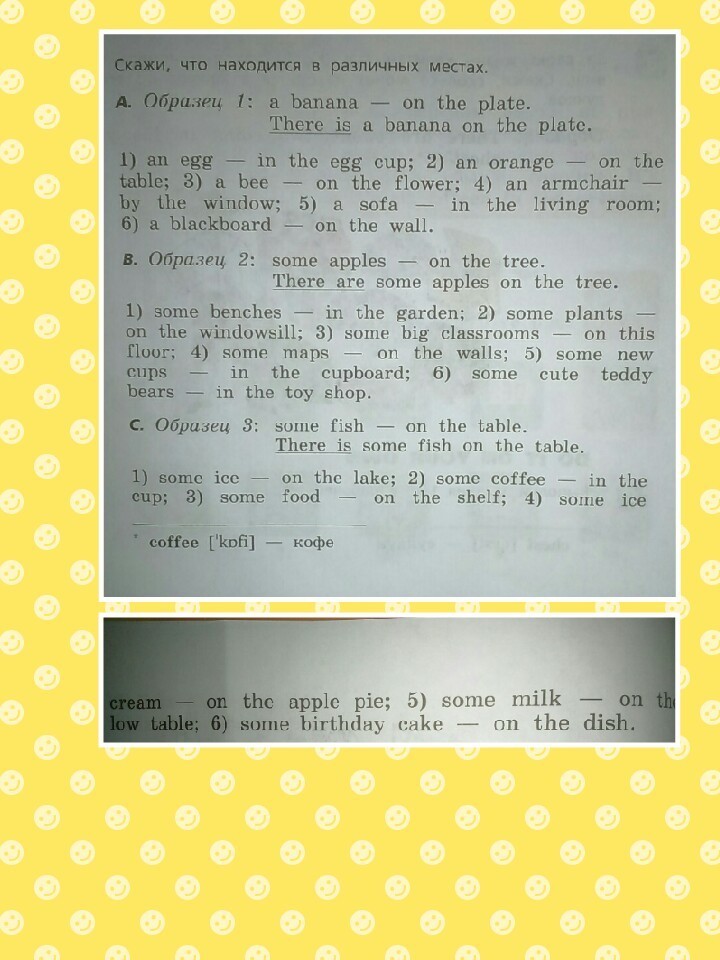 Скажи, что находится в различных местах.
A. Образец 1: a banana — on the plate.
There is a banana on the plate.
1) an egg — in the egg cup; 2) an orange — on the
table; 3) a bee — on the flower; 4) an armchair —
by the window; 5) a sofa — in the living room;
6) a blackboard — on the wall.
B. Образец 2: some apples — on the tree.
There are some apples on the tree.
1) some benches — in the garden; 2) some plants —
on the windowsill; 3) some big classrooms — on this
floor; 4) some maps — on the walls; 5) some new
cups — in the cupboard; 6) some cute teddy
bears — in the toy shop.
C. Образец 3: some fish — on the table.
There is some fish on the table.
1) some ice — on the lake; 2) some coffee — in the
cup; 3) some food — on the shelf; 4) some ice
* coffee ['kɒfi] — кофе
cream — on the apple pie; 5) some milk — on the
low table; 6) some birthday cake — on the dish.